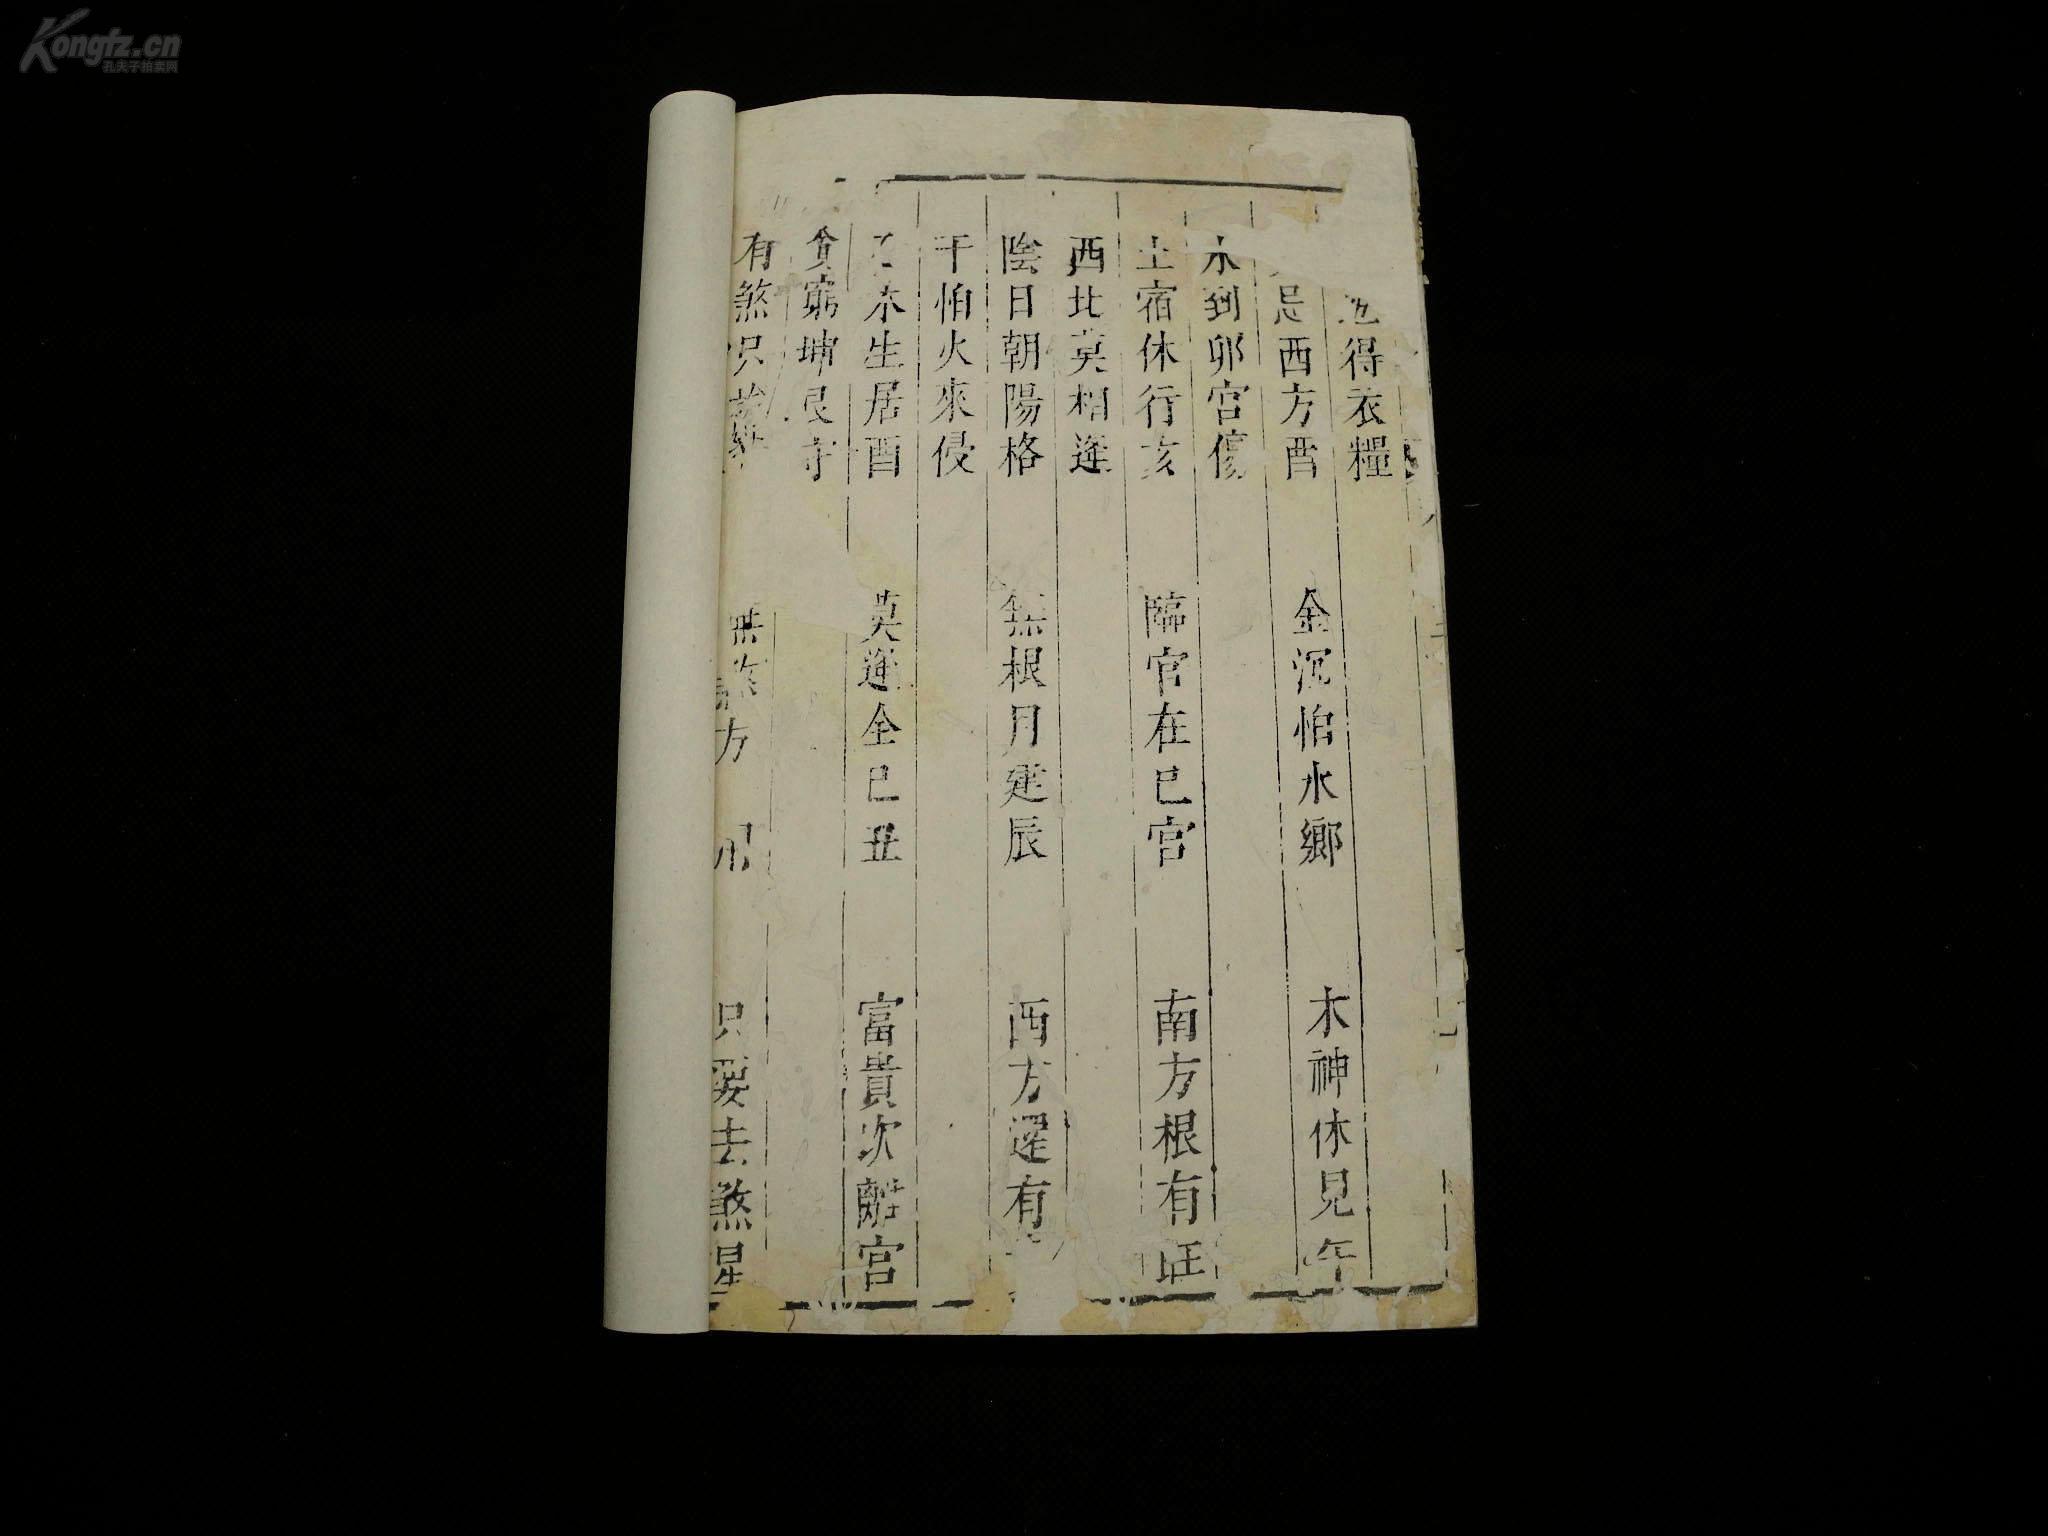 Kongfz.cn
孔夫子拍卖网
得衣糧
忌西方酉 金沉怕水鄉 木神休見午
水到卯宮傷
土宿休行亥 臨官在巳宮 南方根有旺
西北莫相逢
陰日朝陽格 無根月建辰 西方還有
干怕火來侵
木生居酉 莫逢全巳丑 富貴次離宮
貧窮坤艮守
有煞只 無煞方 用 只要去煞星